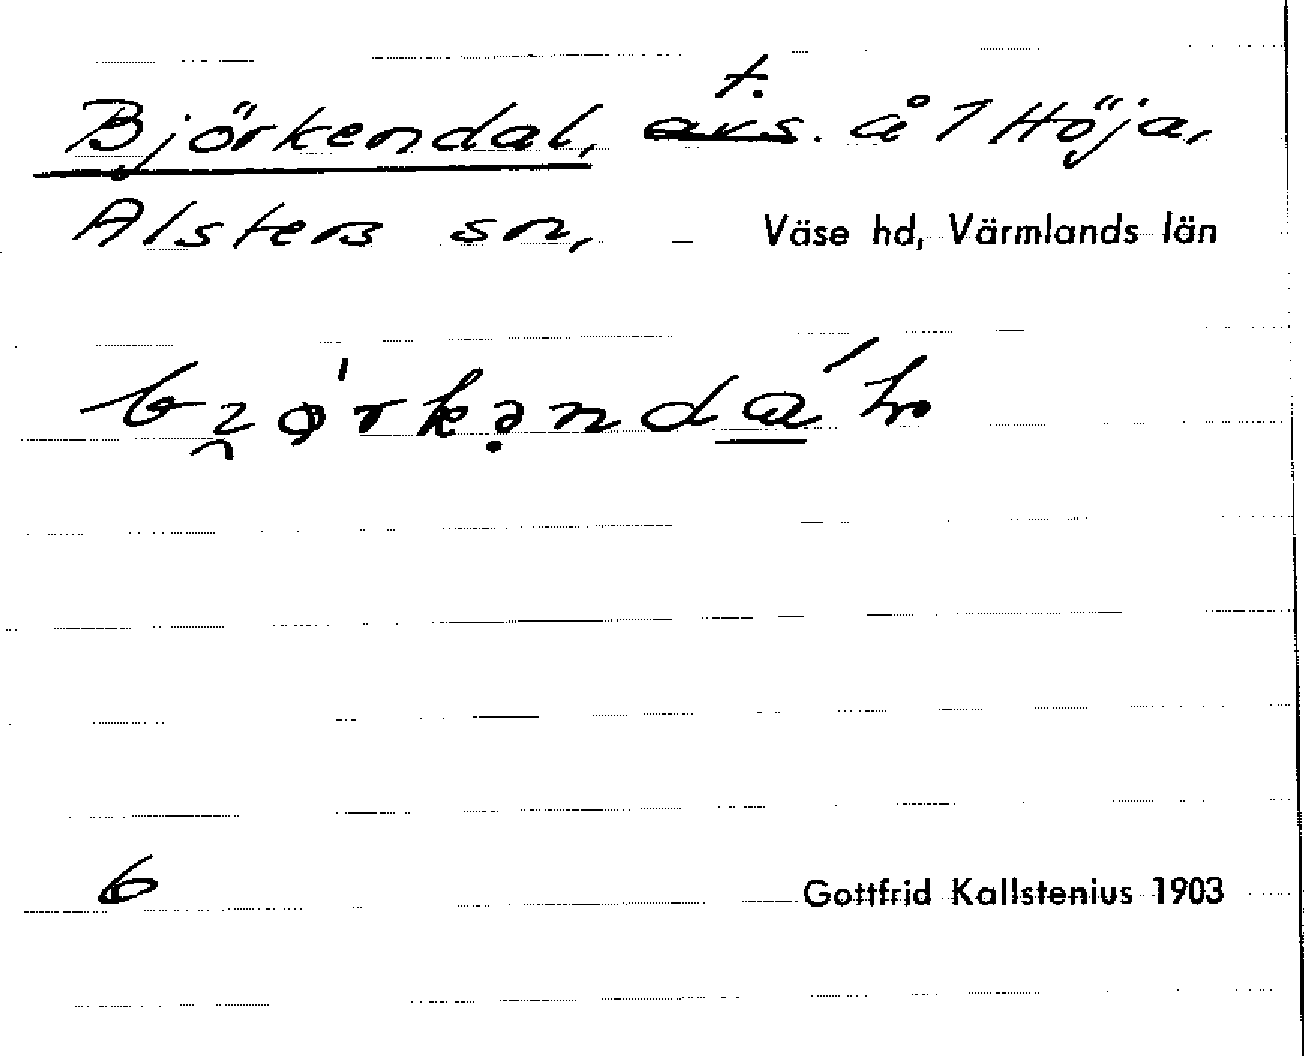 t.
Björkendal, avs. å 1 Höja,
Alsters sn, Väse hd, Värmlands län
6
Gottfrid Kallstenius 1903